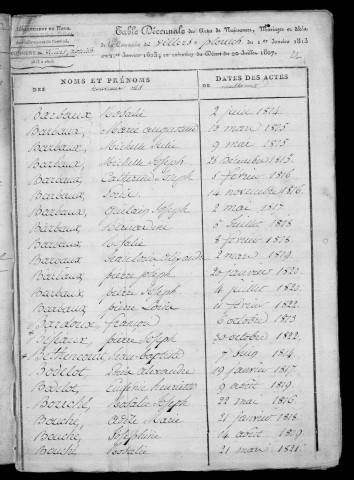 Table Décennale des Actes de Naissances, Mariages et décès
de la Commune de Villers-plouich du 1er Janvier 1813
au 1er Janvier 1823, en exécution du Décret du 20 Juillet 1807.
NOMS ET PRÉNOMS
DATES DES ACTES
DES
DE
Barbaux Rosalie 2 juin 1814.
Barbaux, Marie 10 mars 1815
Barbaux, Michelle Julie 9 mai 1815
Barbaux, Michelle Joseph 26 Décembre 1815.
Barbaux, Catherine Joseph 5 février 1816.
Barbaux, Louis 14 novembre 1816.
Barbaux, Guislain Joseph 2 mai 1817
Barbaux, Bernardine 5 juillet 1818
Barbaux, Rosalie 8 février 1818.
Barbaux, 2 mars 1819.
Barbaux, pierre joseph 20 janvier 1820.
Barbaux, pierre Joseph 4 juillet 1820.
Barbaux, pierre Louis février 1822.
Bardoux françois 6 octobre 1813
pierre Joseph 20 octobre 1822.
Bethencourt Jean-baptiste 7 1814.
Bodelot Alexandre 19 janvier 1817.
Bodelot, Eugénie Henriette 9 août 1819.
Bouché, Rosalie Joseph 22 mai 1816
Bouché, Adèle Marie 21 janvier 1818.
Bouché, Joséphine 14 août 1819
Bouché Rosalie 21 mars 1821.